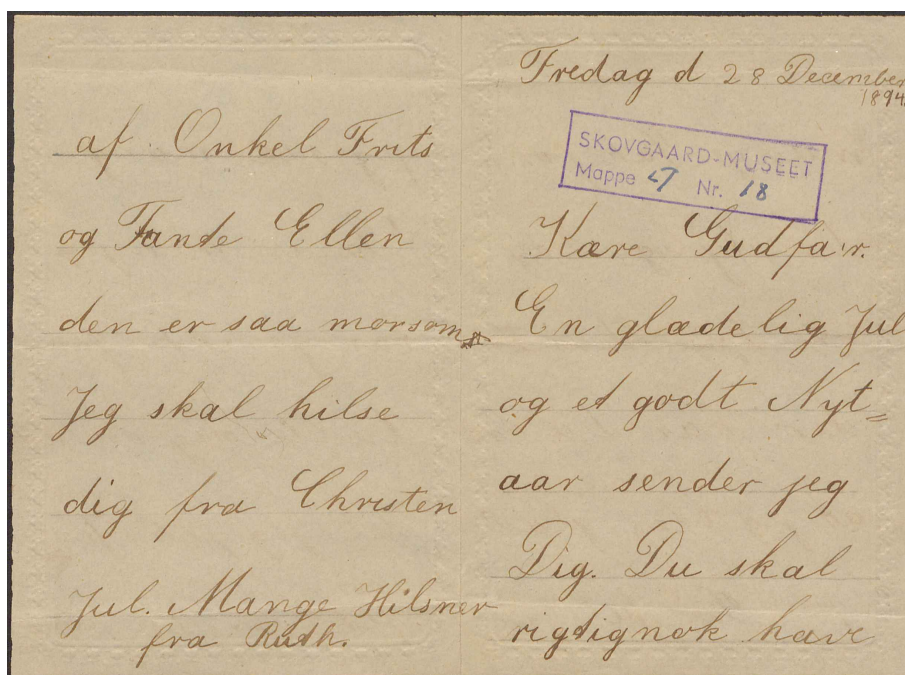 af Onkel Frits
og Tante Ellen
den er saa morsom
Jeg skal hilse
dig fra Christen
Jul. Mange Hilsner
fra Ruth.
Fredag d 28 December
1894
SKOVGAARD-MUSEET
Mappe 47 Nr. 18
Kære Gudfa'r.
En glædelig Jul
og et godt Nyt=
aar sender jeg
Dig. Du skal
rigtignok have